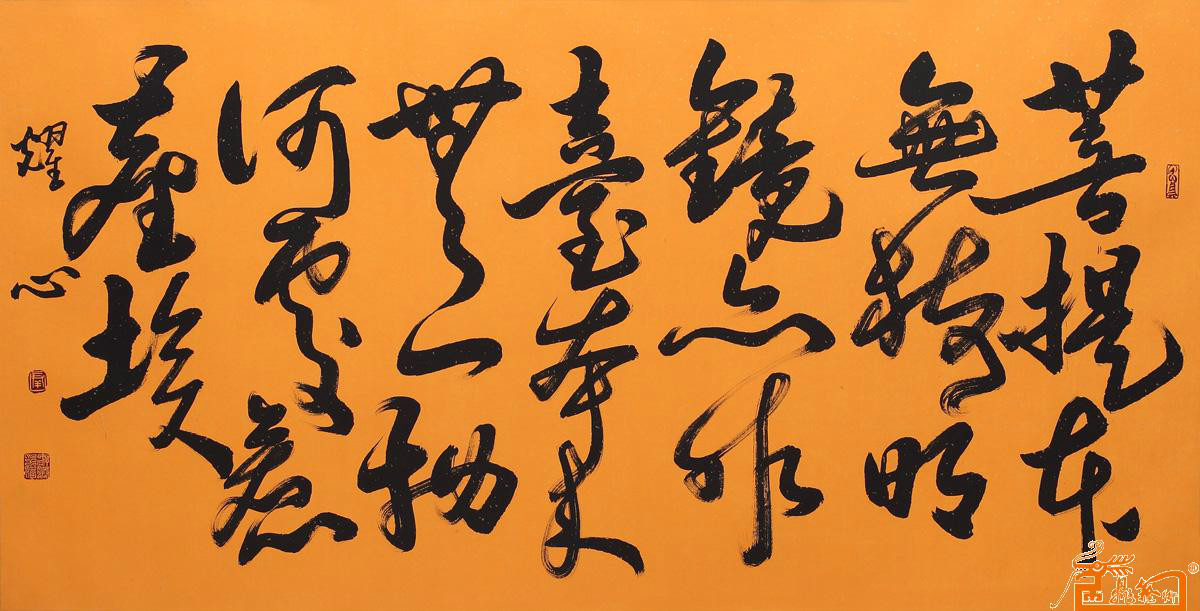 菩提本
無樹明
鏡亦非
臺本来
無一物
何處惹
塵埃
耀心